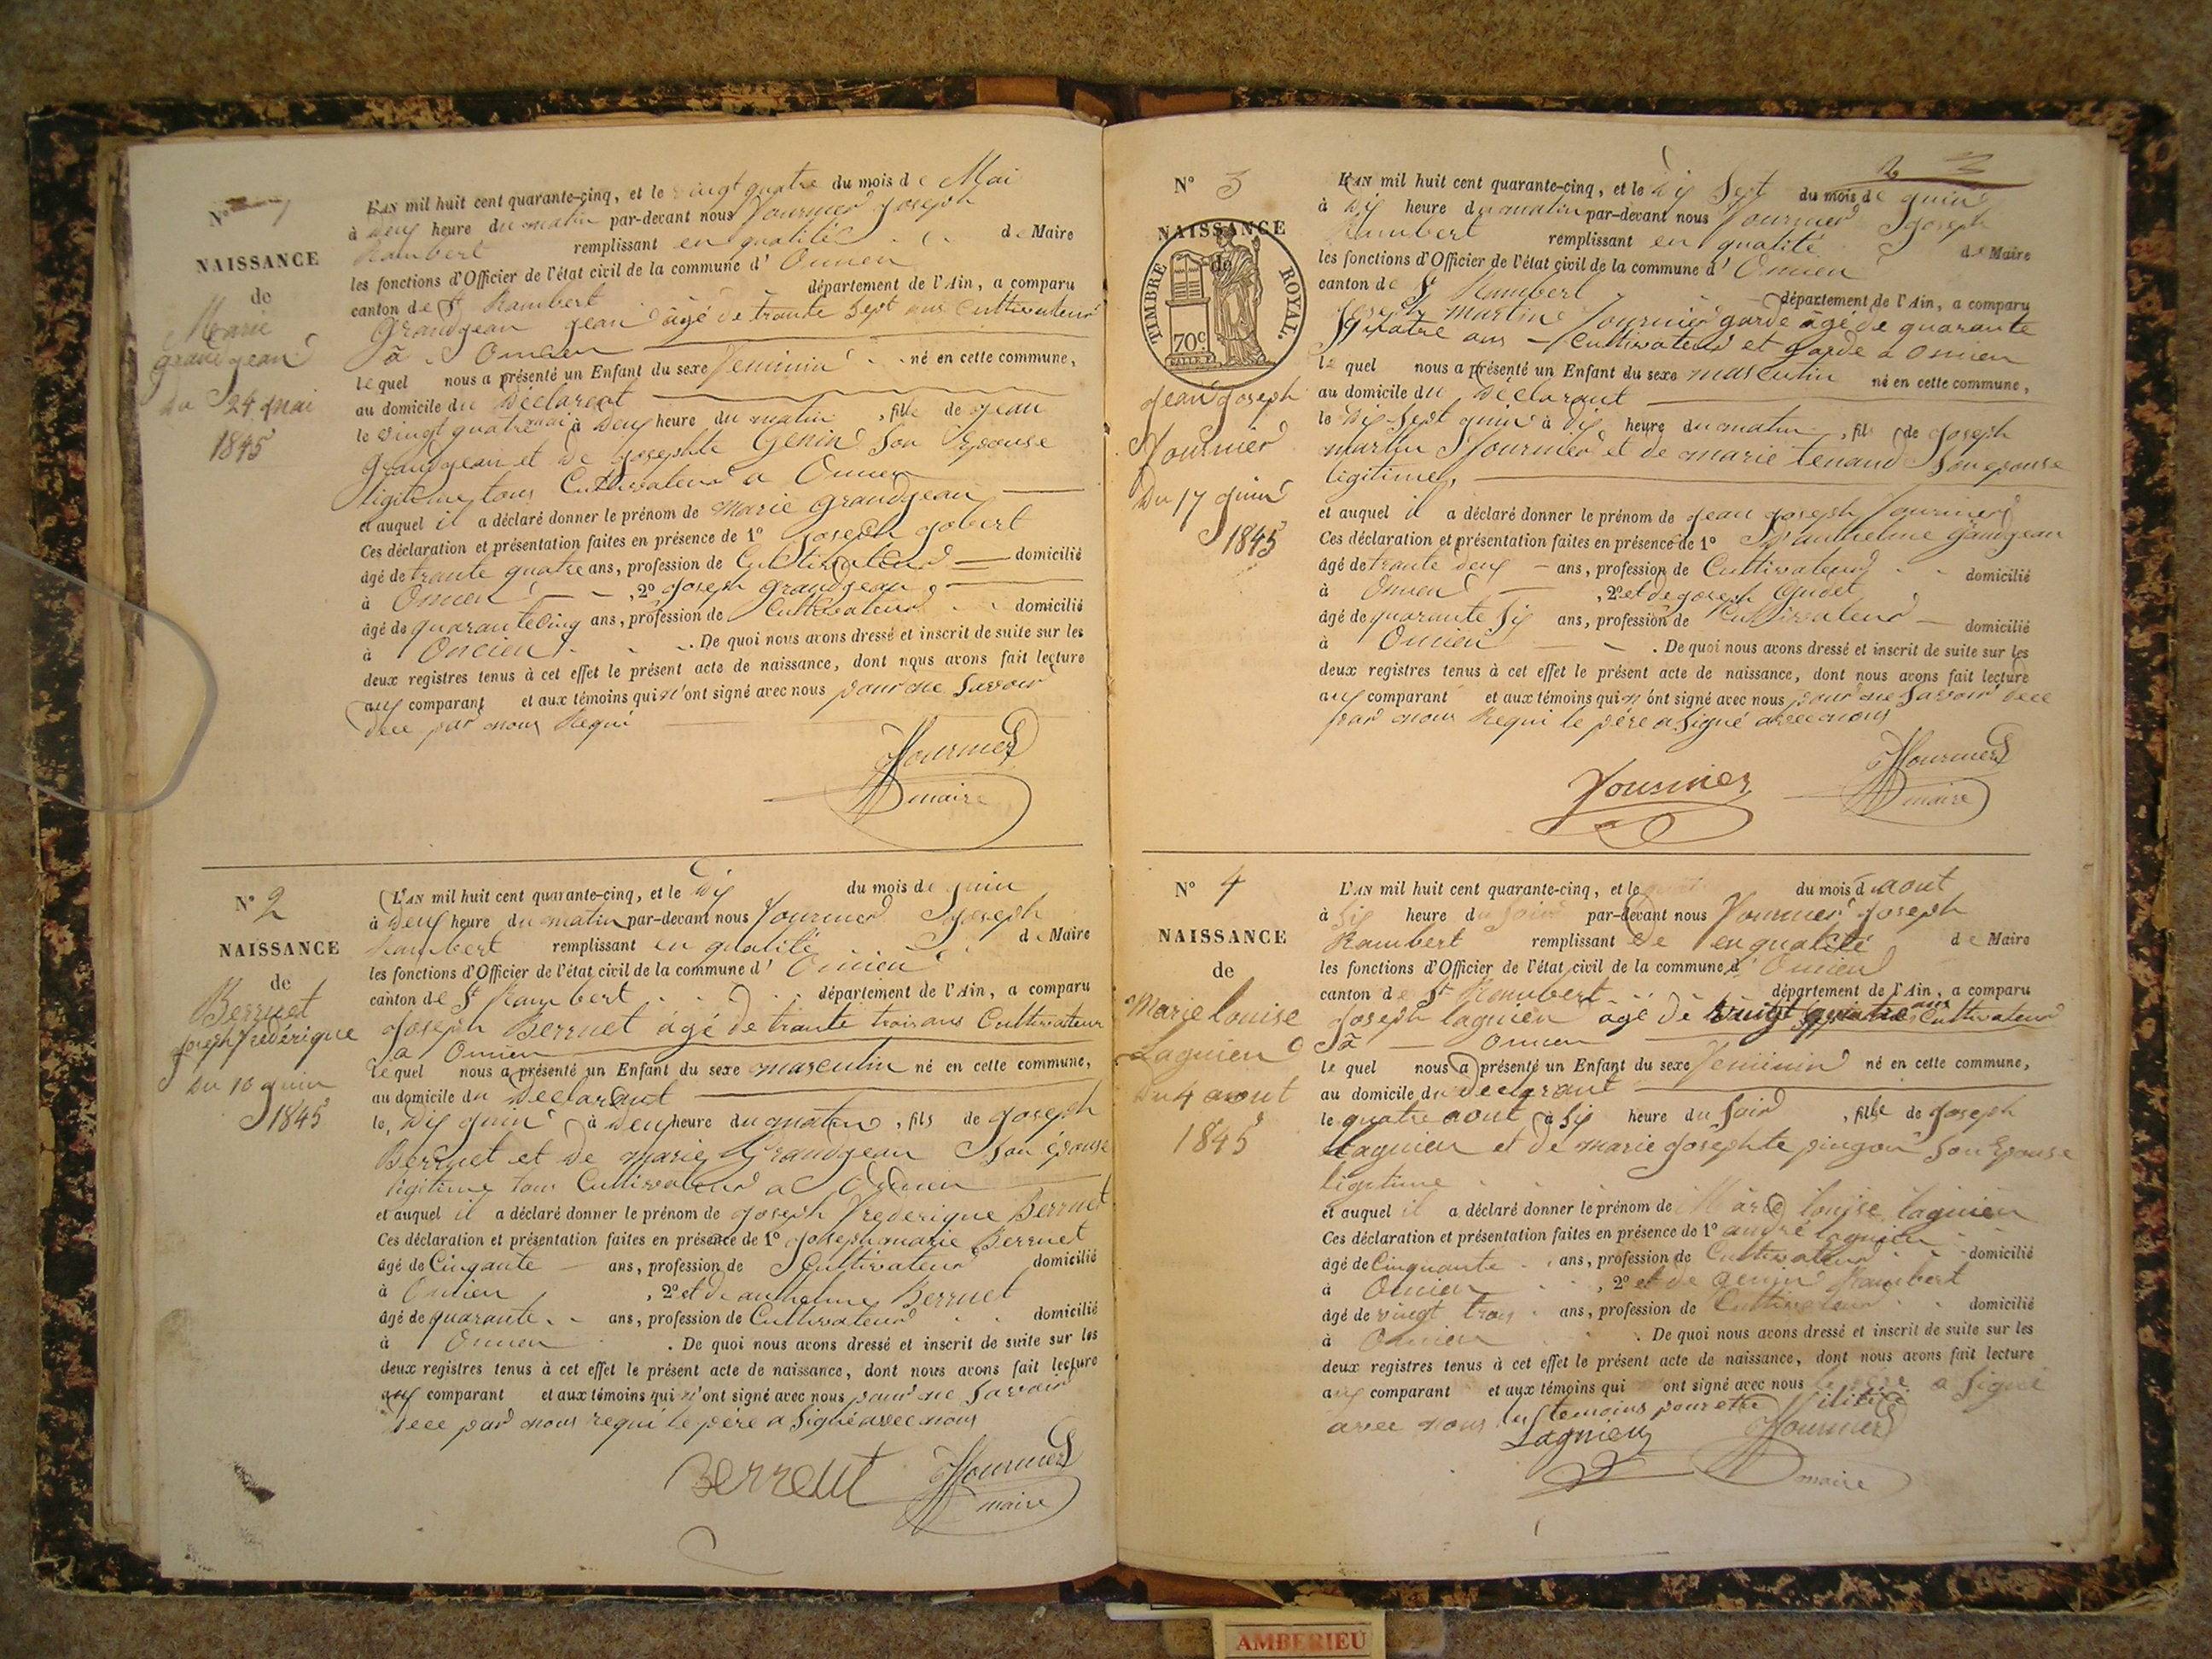 N° 1
NAISSANCE
de
Marie
grandjean
Du 24 Mai
1845
L'AN mil huit cent quarante-cinq, et le vingt quatre du mois de Mai
à Deux heure du matin par-devant nous Fournier Joseph
Rambert remplissant en qualité de Maire
les fonctions d'Officier de l'état civil de la commune d' Oncieu
canton de St Rambert département de l'Ain, a comparu
Grandjean jean âgé de trante Sept ans Cultivateur
à Oncieu
lequel nous a présenté un Enfant du sexe feminin né en cette commune,
au domicile du Déclarant
le vingt quatre mai à Deux heure du matin, fille de jean
Grandjean et De josephte Genin Son Epouse
ligitime tous Cultivateur a Oncieu
et auquel il a déclaré donner le prénom de marie grandjean
Ces déclaration et présentation faites en présence de 1° joseph gobert
âgé de trante quatre ans, profession de Cultivateur domicilié
à Oncieu , 2° joseph grandjean
âgé de quarante Cinq ans, profession de Cultivateur domicilié
à Oncieu . De quoi nous avons dressé et inscrit de suite sur les
deux registres tenus à cet effet le présent acte de naissance, dont nous avons fait lecture
aux comparant et aux témoins qui n'ont signé avec nous pour ne Savoir
Dece par nous Requi
Fournier
maire
N° 2
NAISSANCE
de
Berruet
joseph fredérique
Du 10 juin
1845
L'AN mil huit cent quarante-cinq, et le Dix du mois de juin
à Deux heure du matin par-devant nous Fournier Joseph
Rambert remplissant en qualité de Maire
les fonctions d'Officier de l'état civil de la commune d' Oncieu
canton de St Rambert département de l'Ain, a comparu
joseph Berruet âgé de trante trois ans Cultivateur
a Oncieu
lequel nous a présenté un Enfant du sexe masculin né en cette commune,
au domicile du Déclarant
le Dix juin à Deux heure du matin, fils de joseph
Berruet et De marie Grandjean Son épouse
ligitime tous Cultivateur a Oncieu
et auquel il a déclaré donner le prénom de joseph frederique Berruet
Ces déclaration et présentation faites en présence de 1° joseph marie Berruet
âgé de Cinqante ans, profession de Cultivateur domicilié
à Oncieu , 2° et D anthelme Berruet
âgé de quarante ans, profession de Cultivateur domicilié
à Oncieu . De quoi nous avons dressé et inscrit de suite sur les
deux registres tenus à cet effet le présent acte de naissance, dont nous avons fait lecture
aux comparant et aux témoins qui n'ont signé avec nous pour ne Savoir
dece par nous requi le père a Signé avec nous
Berreut
Fournier
maire
2 3
N° 3
NAISSANCE
de
TIMBRE ROYAL.
70c
jean joseph
Fournier
Du 17 juin
1845
L'AN mil huit cent quarante-cinq, et le Dix Sept du mois de juin
à Dix heure du matin par-devant nous Fournier Joseph
Rambert remplissant en qualité de Maire
les fonctions d'Officier de l'état civil de la commune d' Oncieu
canton de St Rambert département de l'Ain, a comparu
joseph martin Fournier garde âgé de quarante
quatre ans Cultivateur et garde a Oncieu
le quel nous a présenté un Enfant du sexe masculin né en cette commune,
au domicile du Déclarant
le Dix Sept juin à Dix heure du matin, fils de joseph
martin Fournier et de marie tenand Son epouse
legitime,
et auquel il a déclaré donner le prénom de jean joseph Fournier
Ces déclaration et présentation faites en présence de 1° D'anthelme Gandjean
âgé de trante deux ans, profession de Cultivateur domicilié
à Oncieu , 2° et de joseph Gudet
âgé de quarante Six ans, profession de Cultivateur domicilié
à Oncieu . De quoi nous avons dressé et inscrit de suite sur les
deux registres tenus à cet effet le présent acte de naissance, dont nous avons fait lecture
aux comparant et aux témoins qui n ont signé avec nous pour ne Savoir dece
par nous Requi le père a Signé avec nous
Fournier
Fournier
maire
N° 4
NAISSANCE
de
Marie louise
Lagnieu
Du 4 aout
1845
L'AN mil huit cent quarante-cinq, et le quatre du mois d aout
à Six heure du Soir par-devant nous Fournier Joseph
Rambert remplissant De en qualité de Maire
les fonctions d'Officier de l'état civil de la commune d' Oncieu
canton de St Rambert département de l'Ain, a comparu
joseph lagnieu âgé De vingt quatre ans Cultivateur
à Oncieu
le quel nous a présenté un Enfant du sexe feminin né en cette commune,
au domicile du declarant
le quatre aout à Six heure du Soir, fille de joseph
Lagnieu et De marie josephte pingon Son Epouse
ligitime
et auquel il a déclaré donner le prénom de Marie louise lagnieu
Ces déclaration et présentation faites en présence de 1° andré lagnieu
âgé de Cinquante ans, profession de Cultivateur domicilié
à Oncieu , 2° et de genin Rambert
âgé de vingt trois ans, profession de Cultivateur domicilié
à Oncieu . De quoi nous avons dressé et inscrit de suite sur les
deux registres tenus à cet effet le présent acte de naissance, dont nous avons fait lecture
aux comparant et aux témoins qui ont signé avec nous le père a Signé
avec nous les temoins pour etre
Lagnieu
Fournier
maire
AMBERIEU